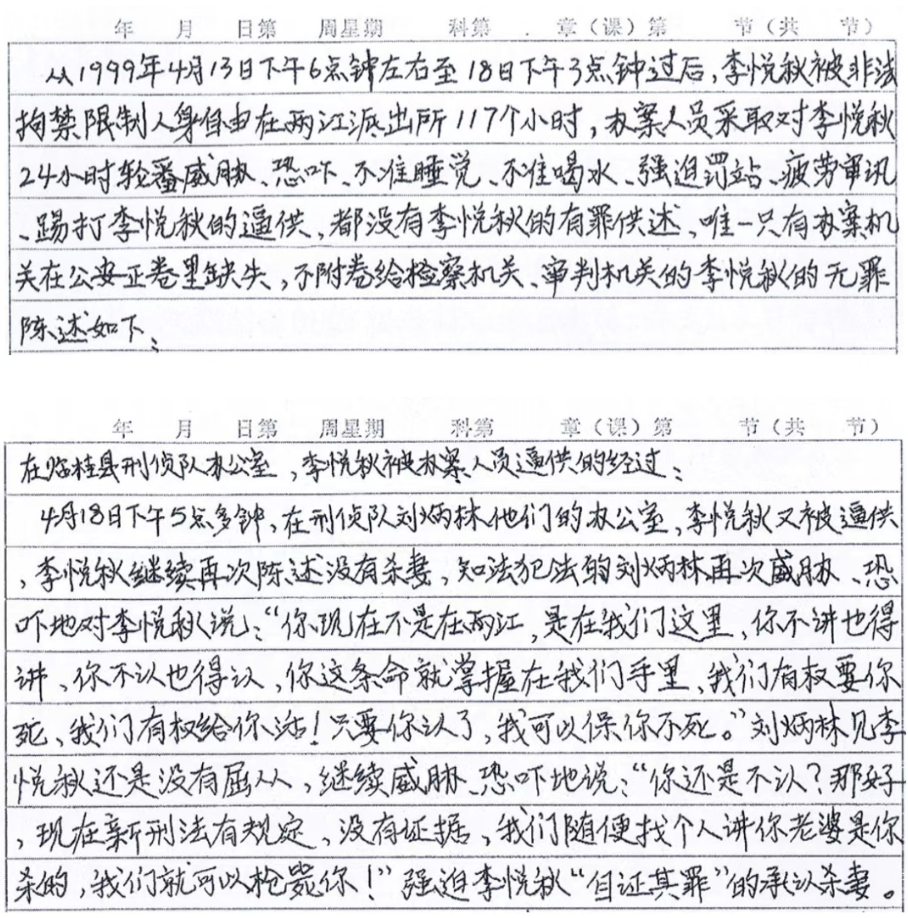 年 月 日第 周星期 科第 . 章（课）第 节（共 节）
从1999年4月13日下午6点钟左右至18日下午3点钟过后，李悦秋被非法
拘禁限制人身自由在两江派出所117个小时，办案人员采取对李悦秋
24小时轮番威胁、恐吓、不准睡觉、不准喝水、强迫罚站、疲劳审讯
、踢打李悦秋的逼供，都没有李悦秋的有罪供述，唯一只有办案机
关在公安正卷里缺失，不附卷给检察机关、审判机关的李悦秋的无罪
陈述如下：
年 月 日第 周星期 科第 章（课）第 节（共 节）
在临桂县刑侦队办公室，李悦秋被办案人员逼供的经过：
4月18日下午5点多钟，在刑侦队刘炳林他们的办公室，李悦秋又被逼供
，李悦秋继续再次陈述没有杀妻，知法犯法的刘炳林再次威胁、恐
吓地对李悦秋说：“你现在不是在两江，是在我们这里，你不讲也得
讲、你不认也得认，你这条命就掌握在我们手里、我们有权要你
死、我们有权给你活！只要你认了，我可以保你不死。”刘炳林见李
悦秋还是没有屈从，继续威胁、恐吓地说：“你还是不认？那好
，现在新刑法有规定，没有证据、我们随便找个人讲你老婆是你
杀的，我们就可以枪毙你！”强迫李悦秋“自证其罪”的承认杀妻。